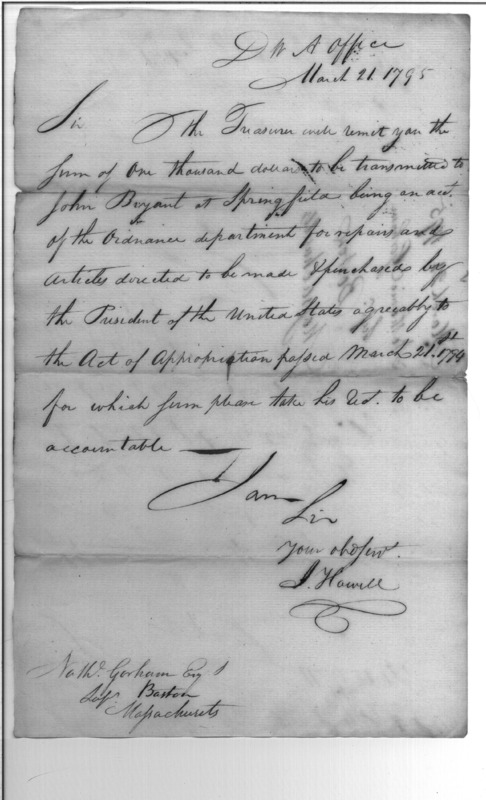 D W A Office
March 21. 1795
Sir The Treasurer will remit you the
sum of one thousand dollars to be transmitted to
John Bryant at Springfield being on acct.
of the Ordnance department for repairs and
articles directed to be made & purchased by
the President of the United States agreeably to
the Act of Appropriation passed March 21.st 1794
for which sum please take his Rct. to be
accountable
I am
Sir
Your obd Servt.
J. Howell
Nathl. Gorham Esqr
Boston
Massachusets